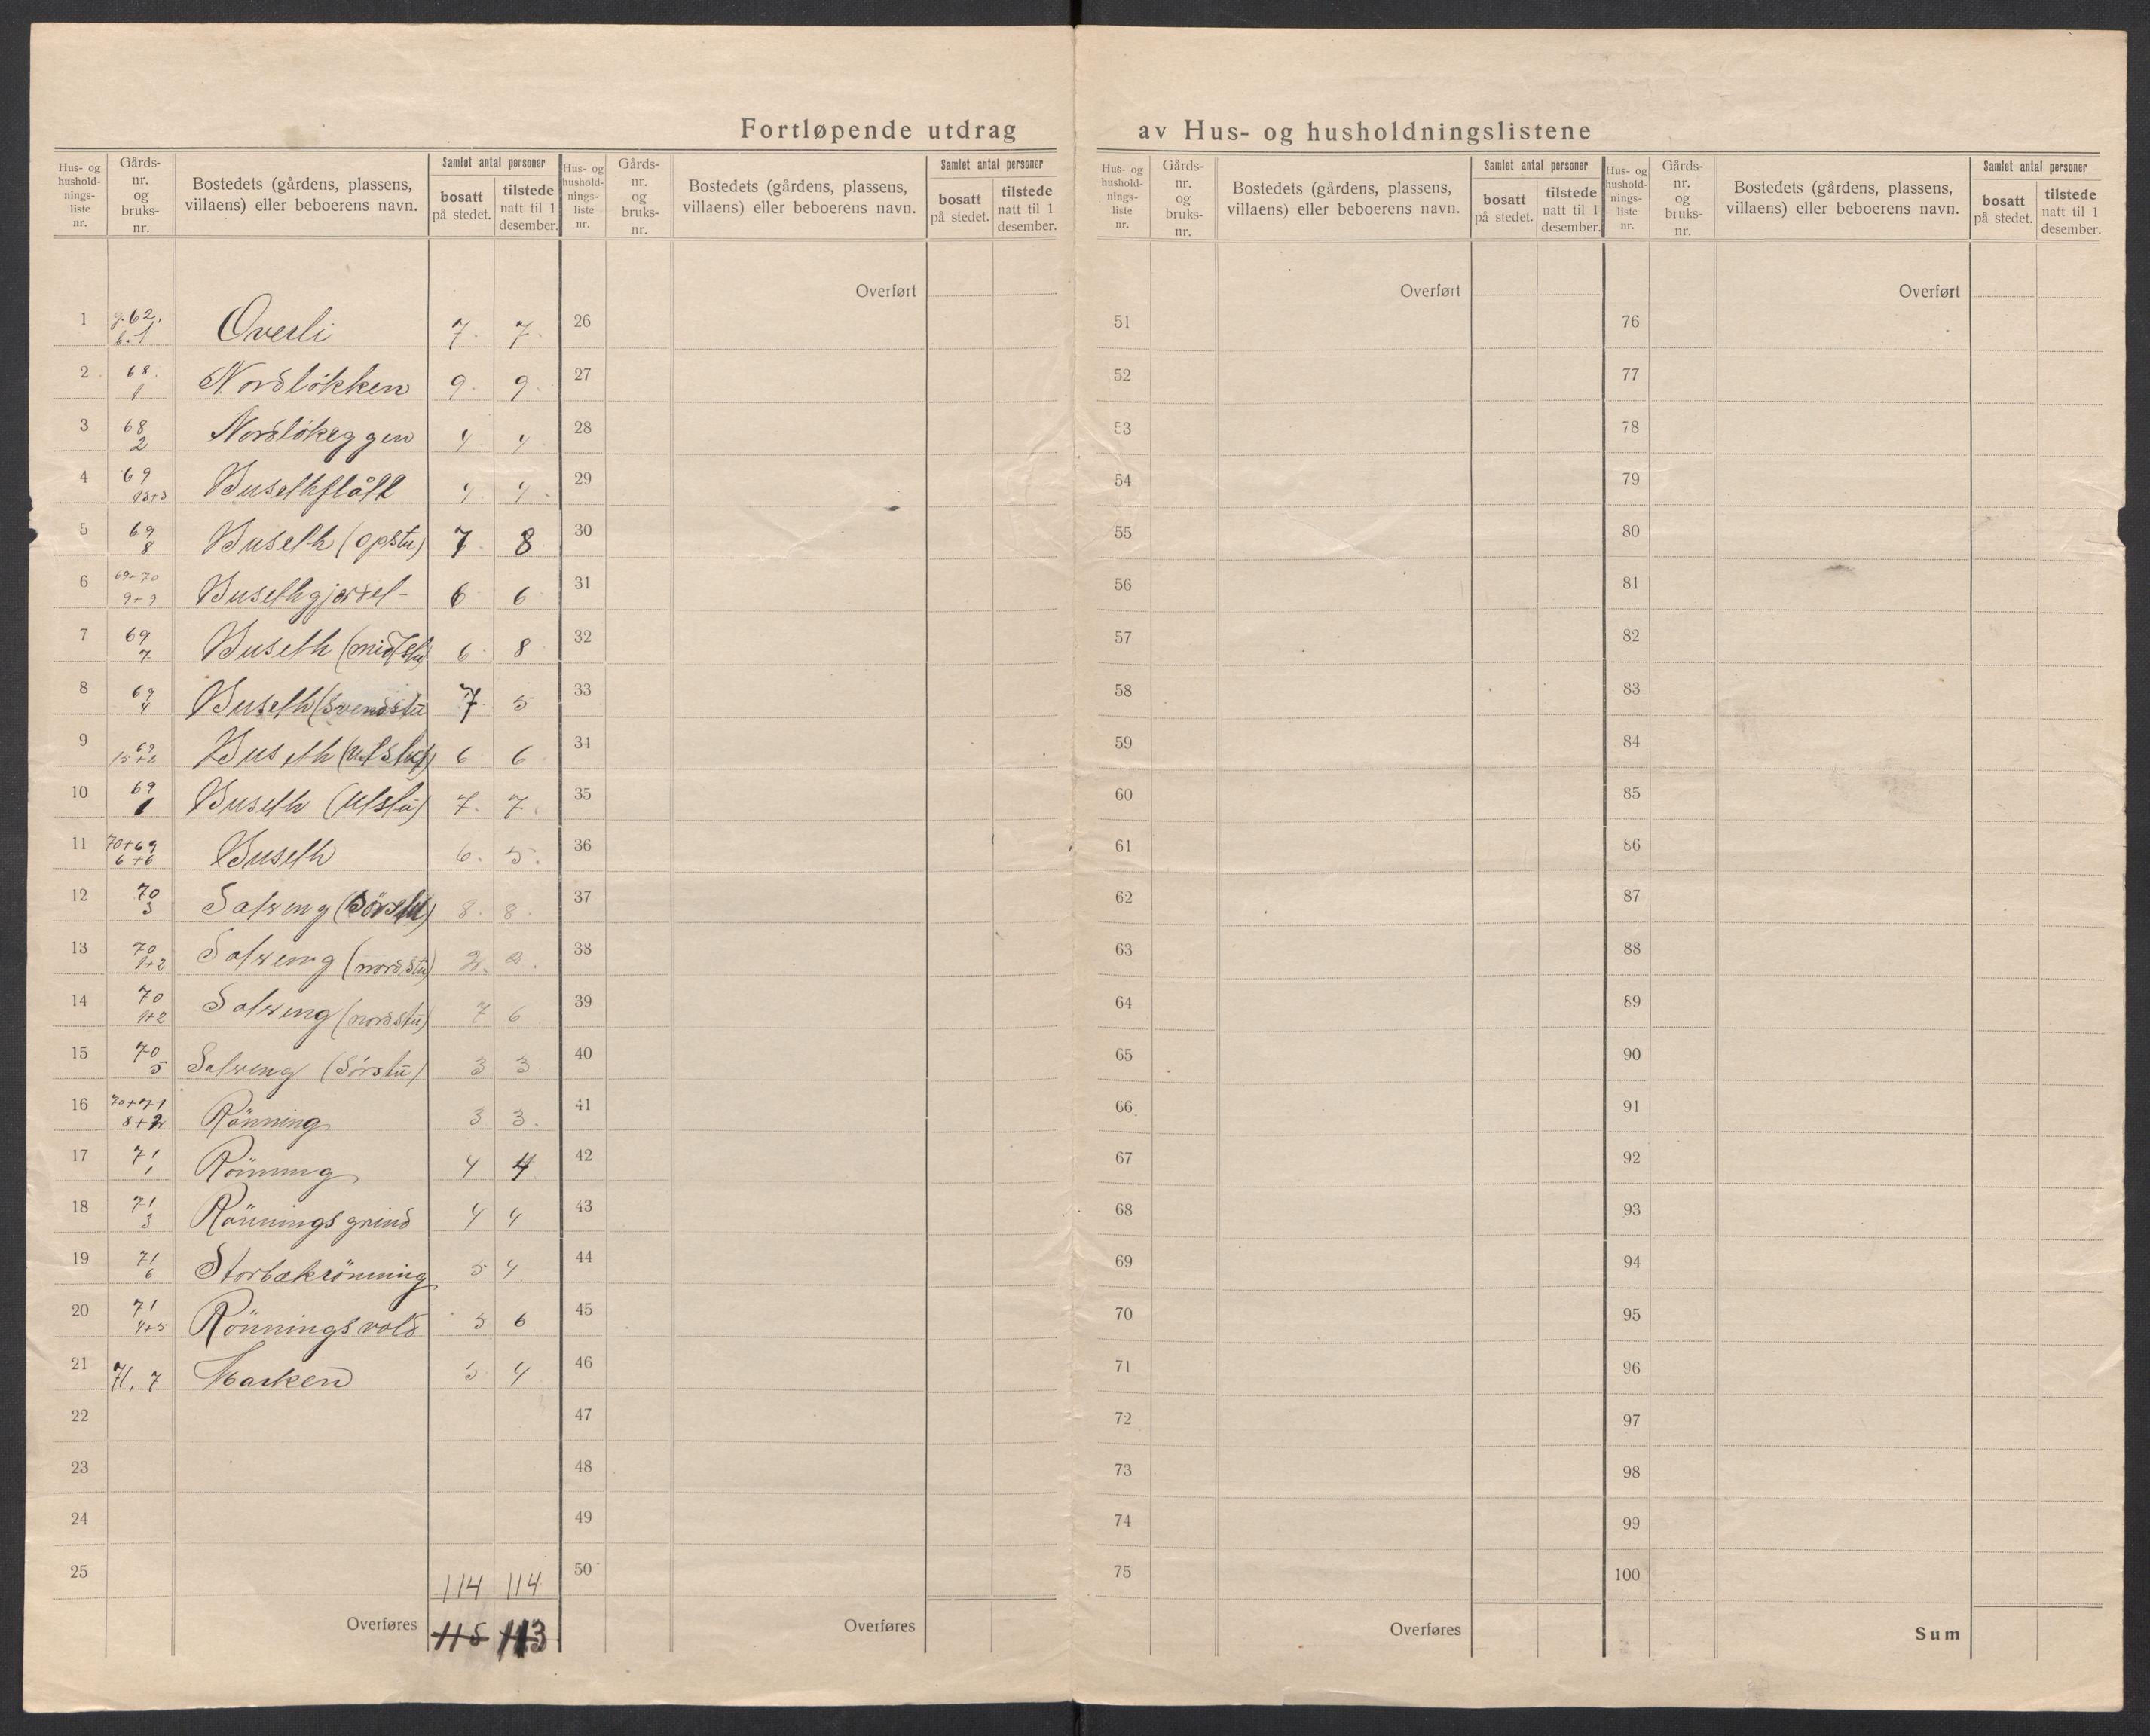 Fortløpende utdrag av Hus- og husholdningslistene
Hus- og husholdningsliste nr. | Gårdsnr. og bruksnr. | Bostedets (gårdens, plassens, villaens) eller beboerens navn. | Samlet antal personer | bosatt på stedet. | tilstede natt til 1 desember.
Hus- og husholdningsliste nr. | Gårdsnr. og bruksnr. | Bostedets (gårdens, plassens, villaens) eller beboerens navn. | Samlet antal personer | bosatt på stedet. | tilstede natt til 1 desember.
Hus- og husholdningsliste nr. | Gårdsnr. og bruksnr. | Bostedets (gårdens, plassens, villaens) eller beboerens navn. | Samlet antal personer | bosatt på stedet. | tilstede natt til 1 desember.
Hus- og husholdningsliste nr. | Gårdsnr. og bruksnr. | Bostedets (gårdens, plassens, villaens) eller beboerens navn. | Samlet antal personer | bosatt på stedet. | tilstede natt til 1 desember.
Overført Overført Overført
1 g. 62. b. 1 Overli 7. 7. 26 51 76
2 68. 1 Nordløkken 9. 9. 27 52 77
3 68 2 Nordløkeggen 4 4 28 53 78
4 69 Busethflått 4 4 29 54 79
5 69 8 Buseth (opstu) 7 8 30 55 80
6 69+70 9+9 Busethgjerdet 6 6 31 56 81
7 69 7 Buseth (midtstu) 6 8 32 57 82
8 69 4 Buseth (Svendstu 7 5 33 58 83
9 69 15+2 Buseth 6 6 34 59 84
10 69 1 Buseth (Utstu) 7. 7. 35 60 85
11 70+69 6+6 Buseth 6. 5. 36 61 86
12 70 3 Salveng (Sörstu) 8. 8. 37 62 87
13 70 1+2 Salveng (nordstu) 2. 2. 38 63 88
14 70 1+2 Salveng (nordstu) 7 6 39 64 89
15 70 5 Salveng (Sörstu) 3 3 40 65 90
16 70+71 8+2 Rönning 3 3. 41 66 91
17 71 1 Rönning 4 4 42 67 92
18 71 3 Rönningsgrind 4 4 43 68 93
19 71 6 Storbækrönning 5 4 44 69 94
20 71 4+5 Rönningsvold 5 6 45 70 95
21 71, 7 Marken 5 4 46 71 96
22 47 72 97
23 48 73 98
24 49 74 99
25 114 114 50 75 100
Overføres 115 113 Overføres Overføres Sum